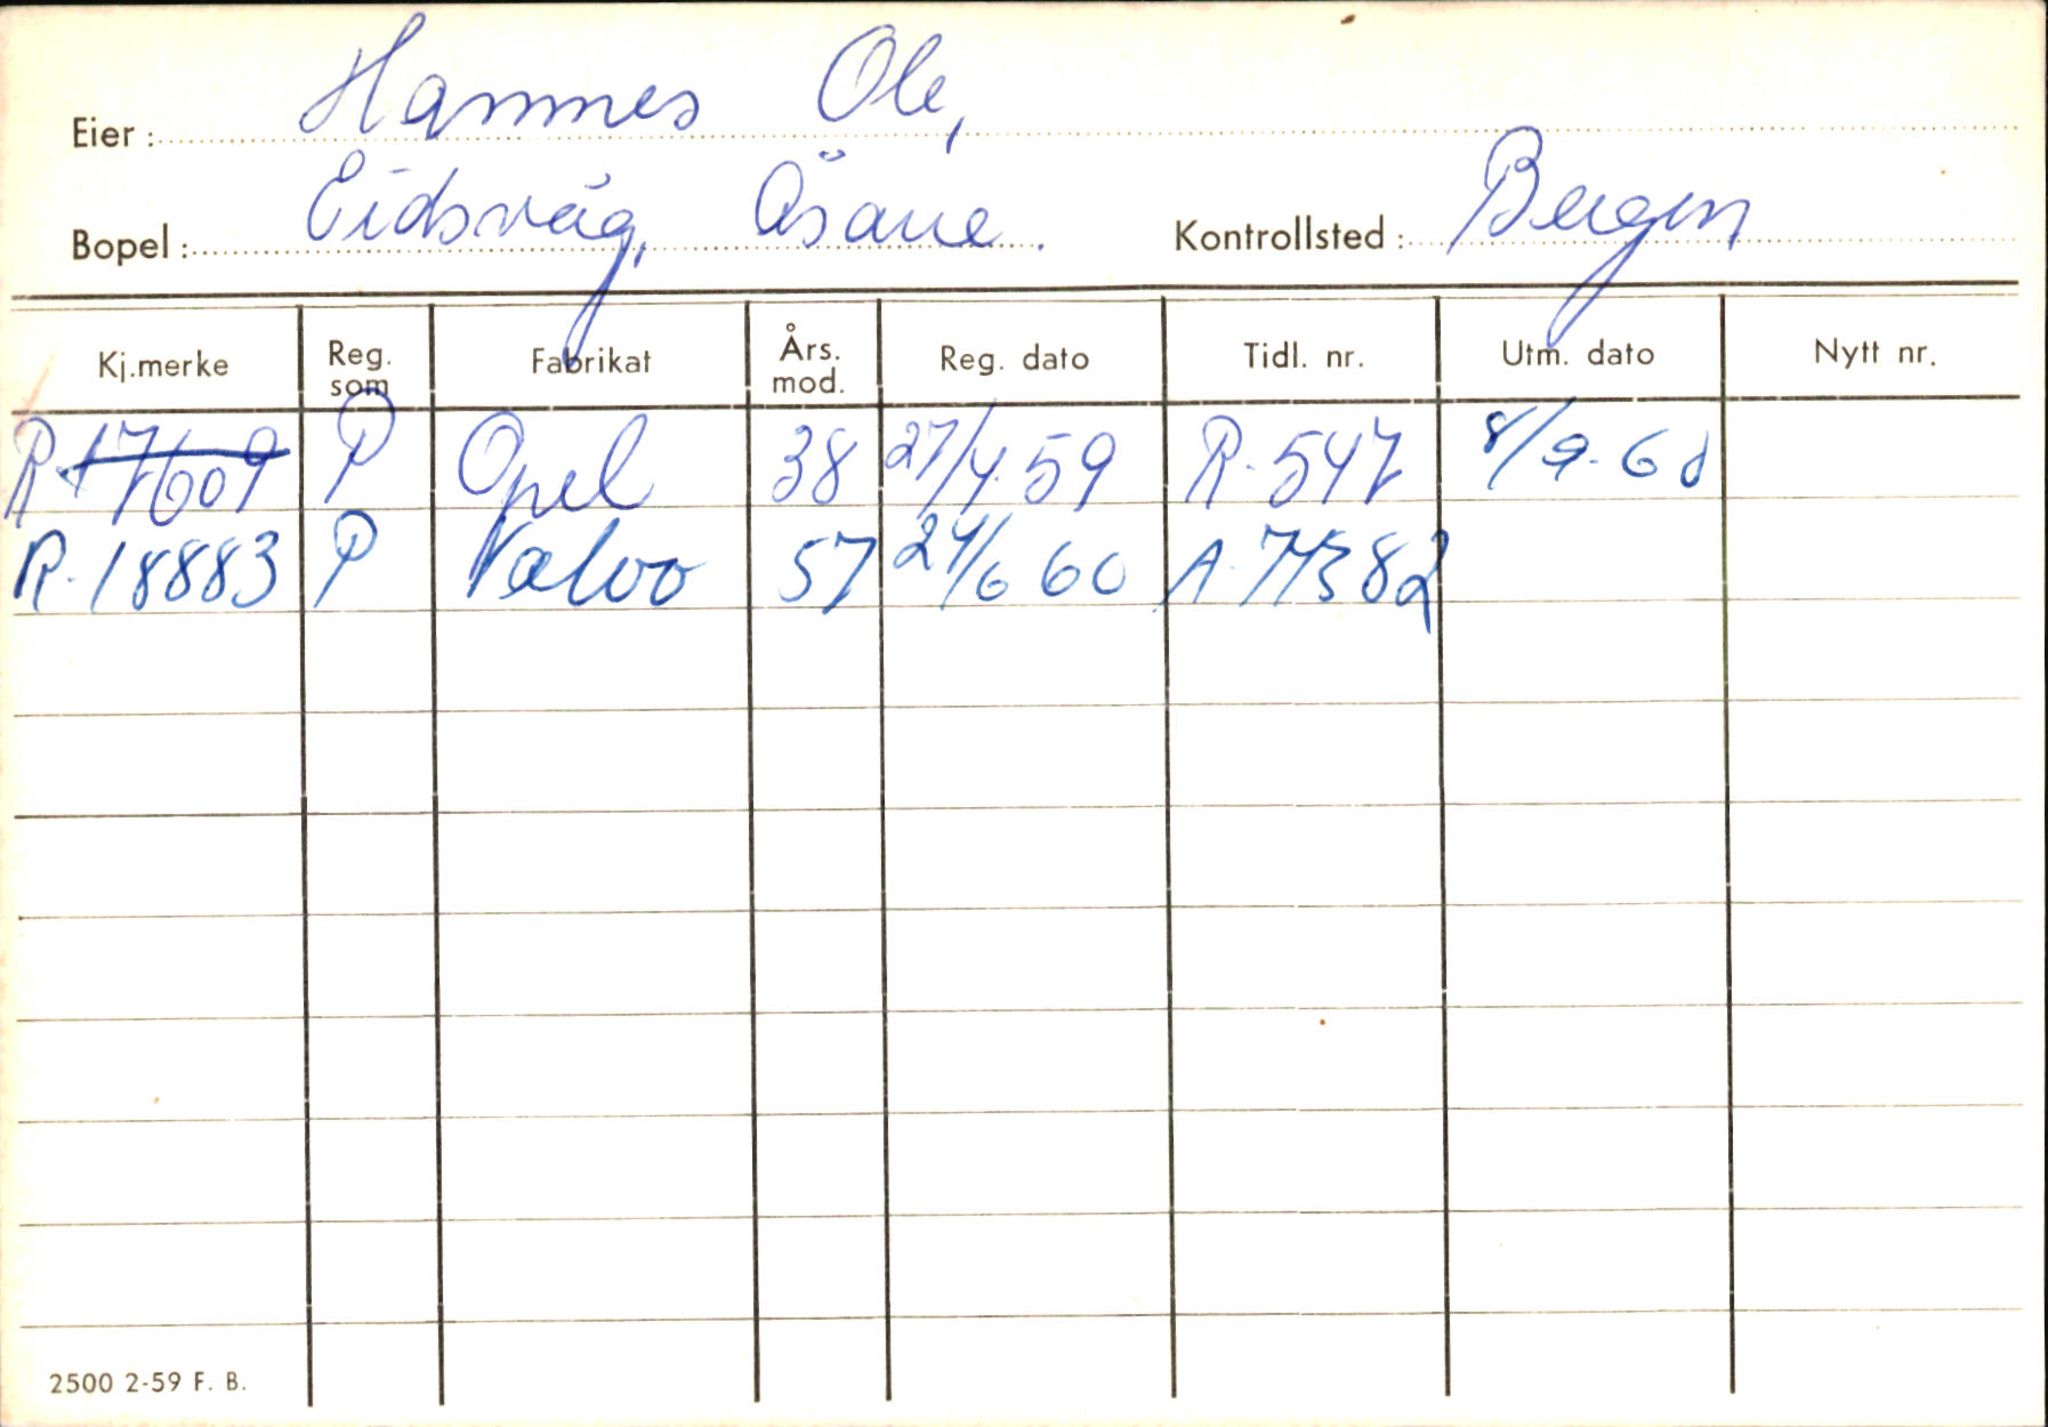 Eier: Hannes Ole,
Bopel: Eidsvåg, Åsane. Kontrollsted: Bergen
Kj.merke Reg. som Fabrikat Års. mod. Reg. dato Tidl. nr. Utm. dato Nytt nr.
R-17609 P Opel 38 27/4.59 R-547 8/9-60
R-18883 P Volvo 57 24/6 60 A-77382
2500 2-59 F. B.